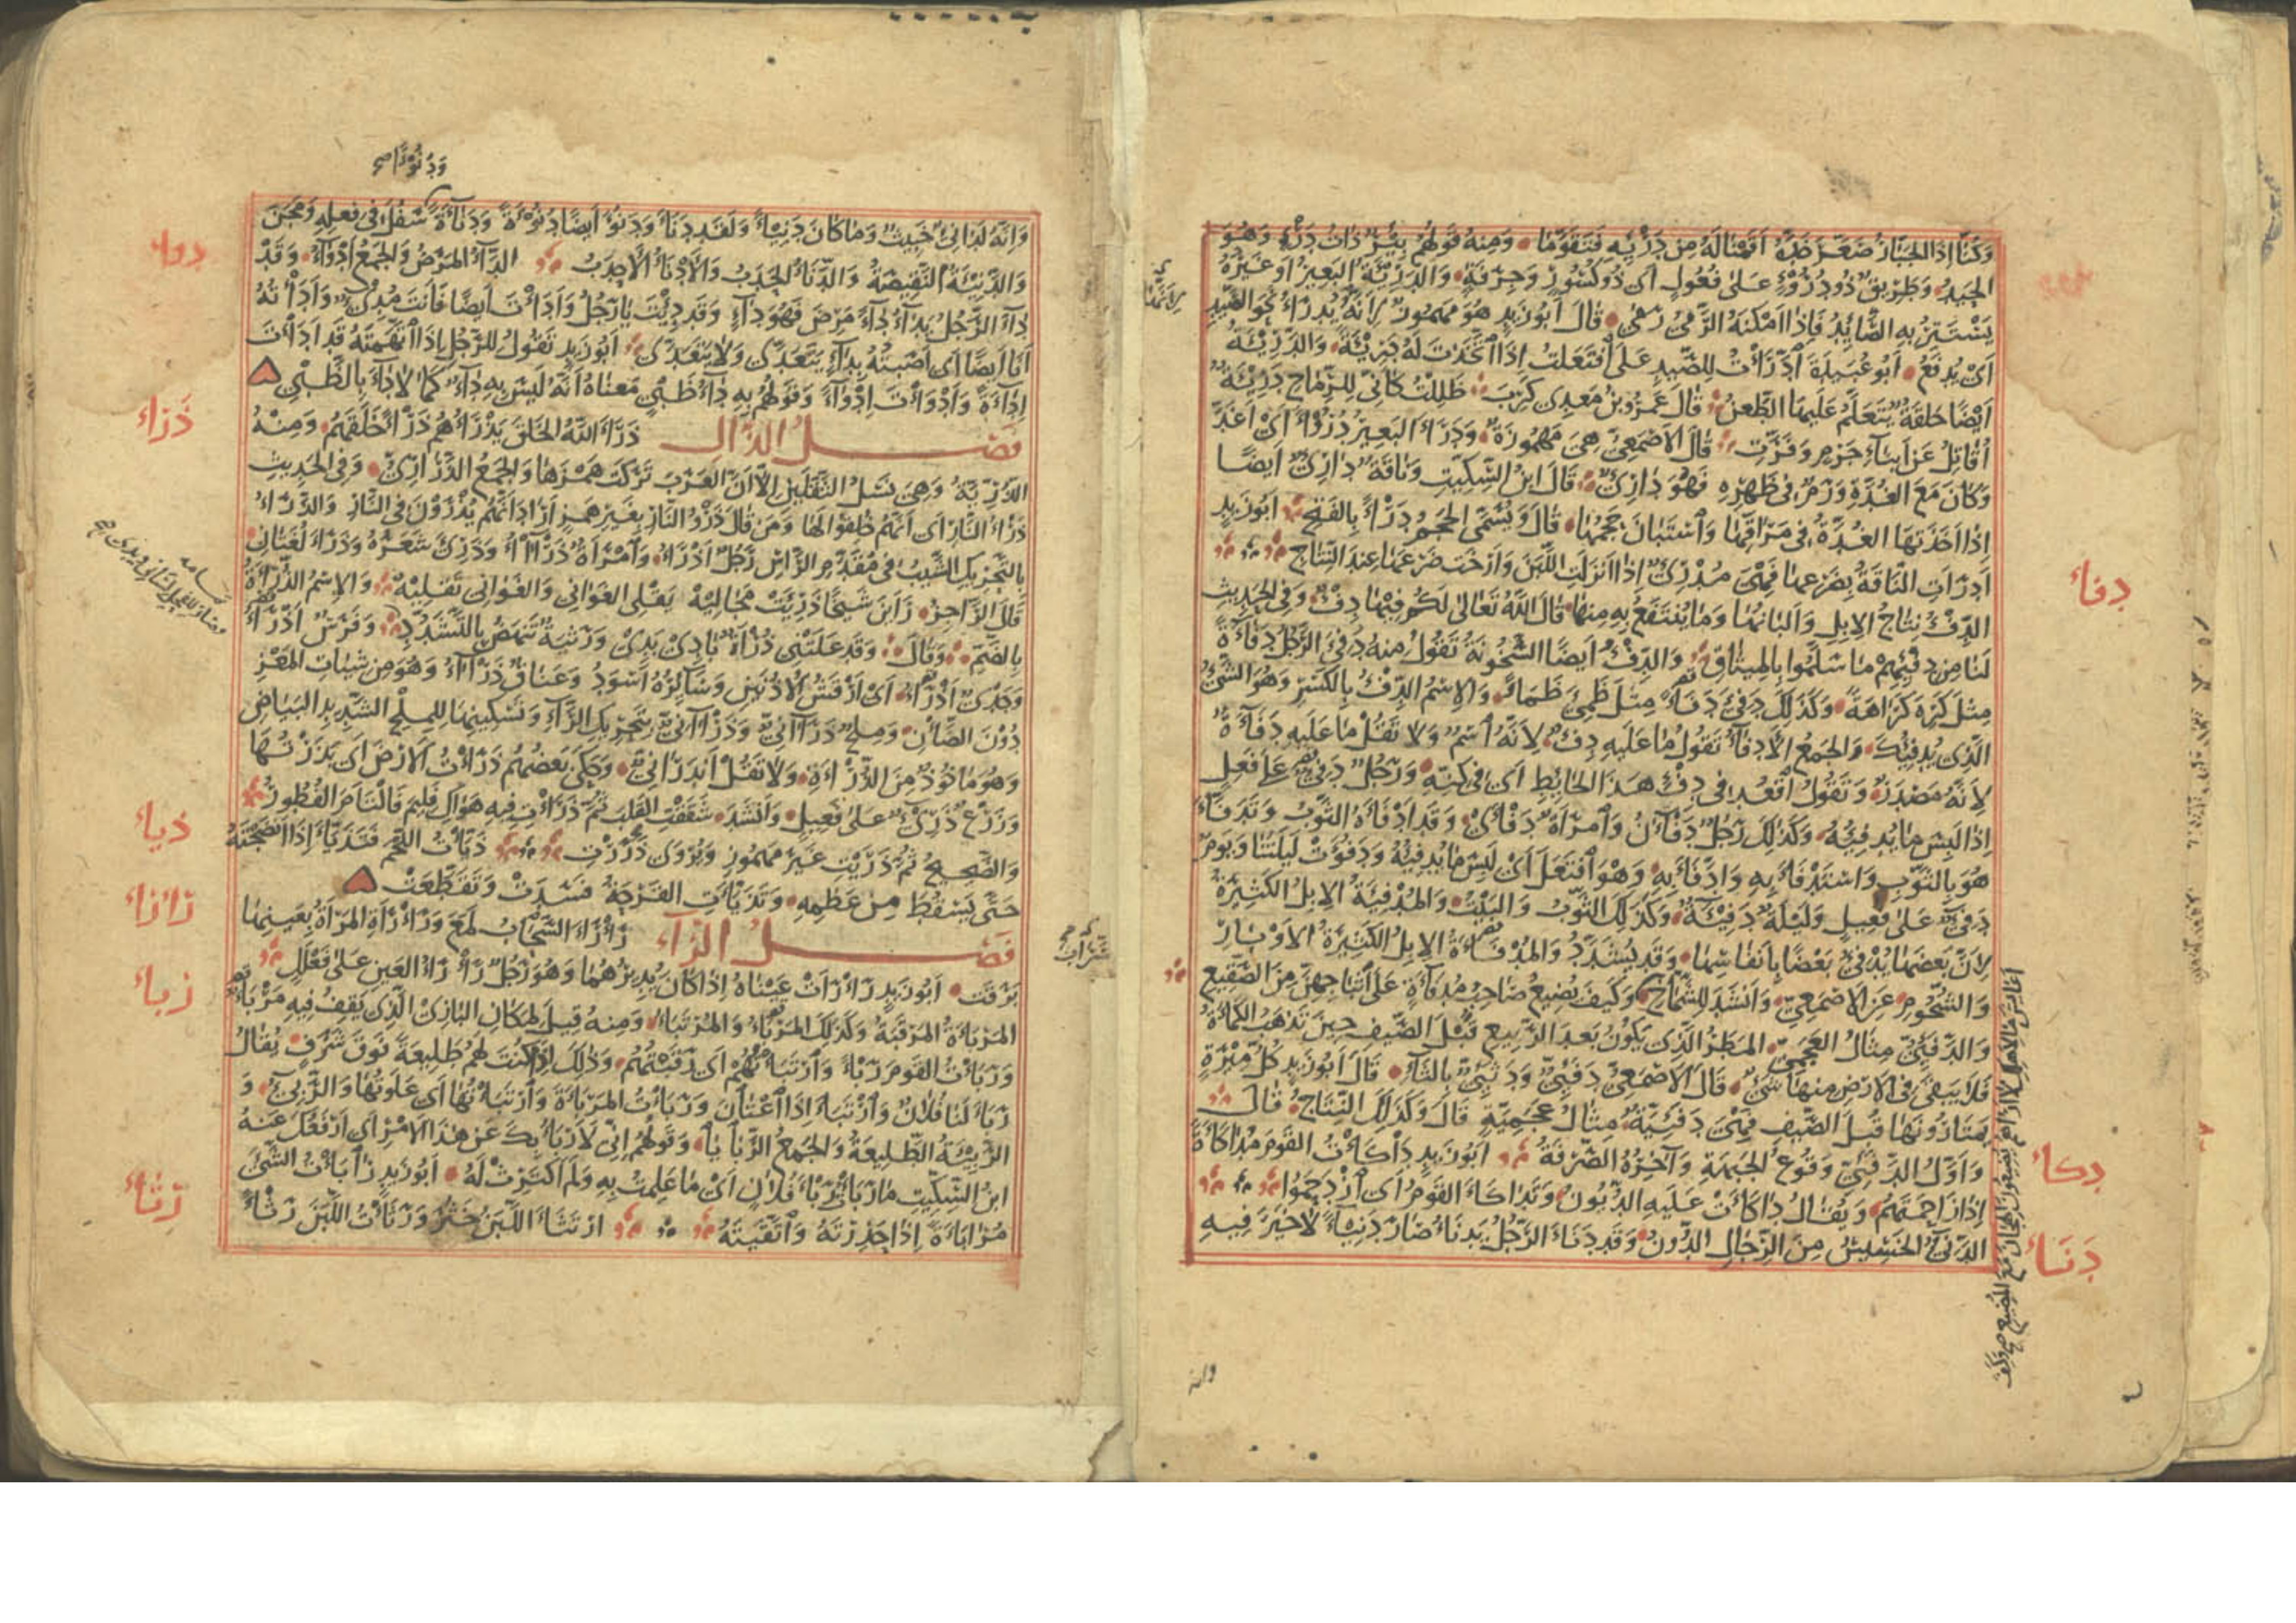 وَكُنَّا اِذَا الجَبَّارُ صَعَّرَ خَدَّهُ اَقَمْنَا لَهُ مِن دَرْئِهِ فَتَقَوَّمَا وَمِنهُ قَولُهُم بِئْرٌ ذَاتُ دَرْءٍ وَهُوَ
الحَيدُ وَطَرِيقٌ ذُو دُرُوْءٍ عَلىٰ فُعُولٍ اَى ذُو كُسُورٍ وَجِرَفَةٍ وَالدَّرِيَّةُ البَعِيرُ اَو غَيرُهُ
يَسْتَتِرُ بِهِ الصَّائِدُ فَاِذَا اَمْكَنَهُ الرَّمىُ رَمىٰ قَالَ اَبُو زَيدٍ هُوَ مَهمُوزٌ لِاَنَّهُ يُدرَاءُ نَحوَ الصَّيدِ
اَىْ يُدفَعُ اَبُو عُبَيدَةَ اَدَّرَاْتُ لِلصَّيدِ عَلَى اَفتَعَلتُ اِذَا اتَّخَذتَ لَهُ دَرِيْئَةً وَالدَّرِيْئَةُ
اَيْضًا حَلقَةٌ يُتَعَلَّمُ عَلَيهَا الطَّعنُ قَالَ عَمرُو بنُ مَعدِى كَرِبَ ظَلِلْتُ كَاَنِّى لِلرِّمَاحِ دَرِيْئَةٌ
اُقَاتِلُ عَن اَبنَاءِ جَرمٍ وَفَرَّتِ قَالَ الاَصْمَعِىُّ هِىَ مَهمُوزَةٌ وَدَرَاءَ البَعِيرُ دُرُوْاً اَىْ اَغَدَّ
وَكَانَ مَعَ الغُدَّةِ وَرَمٌ فِى ظَهرِهِ فَهُوَ دَارِئٌ قَالَ ابنُ السِّكِّيتِ وَنَاقَةٌ دَارِئٌ اَيضًا
اِذَا اَخَذَتهَا الغُدَّةُ فِى مَرَاقِّهَا وَاسْتَبَانَ حَجمُهَا قَالَ وَيُسَمَّى الحَجمُ دَرْاً بِالفَتحِ اَبُو زَيدٍ
اَدرَاَتِ النَّاقَةُ بِضَرعِهَا فَهِىَ مُدْرِئٌ اِذَا اَنزَلَتِ اللَّبَنَ وَاَرخَت ضَرعَهَا عِندَ النِّتَاجِ
الدِّفْءُ نِتَاجُ الاِبِلِ وَاَلبَانُهَا وَمَا يُنتَفَعُ بِهِ مِنهَا قَالَ اللّٰهُ تَعَالىٰ لَكُم فِيهَا دِفْءٌ وَفِى الحَدِيثِ
لَنَا مِن دِفْئِهِمْ مَا سَلَّمُوا بِالمِيثَاقِ وَالدِّفْءُ اَيضًا السُّخُونَةُ تَقُولُ مِنهُ دَفِئَ الرَّجُلُ دَفَآءَةً
مِثلَ كَرِهَ كَرَاهَةً وَكَذٰلِكَ دَفِئَ دَفَاً مِثلَ ظَمِئَ ظَمَاً وَالاِسْمُ الدِّفْءُ بِالكَسْرِ وَهُوَ الشَّىْءُ
الَّذِى يُدفِئُكَ وَالجَمعُ الاَدفَآءُ تَقُولُ مَا عَلَيهِ دِفْءٌ لِاَنَّهُ اسْمٌ وَلَا تَقُلْ مَا عَلَيهِ دَفَآءَةٌ
لِاَنَّهُ مَصْدَرٌ وَتَقُولُ اقْعُد فِى دِفْءِ هٰذَا الحَائِطِ اَى فِى كِنِّهِ وَرَجُلٌ دَفِئٌ عَلَى فَعِلٍ
اِذَا لَبِسَ مَا يُدفِئُهُ وَكَذٰلِكَ رَجُلٌ دَفْآنُ وَامرَاَةٌ دَفْأىٰ وَقَد اَدْفَاَهُ الثَّوبُ وَتَدَفَّاَ
هُوَ بِالثَّوبِ وَاسْتَدْفَاَ بِهِ وَادَّفَاَ بِهِ وَهُوَ افتَعَلَ اَىْ لَبِسَ مَا يُدفِئُهُ وَدَفُؤَتْ لَيلَتُنَا وَيَومٌ
دَفِئٌ عَلىٰ فَعِيلٍ وَلَيلَةٌ دَفِيْئَةٌ وَكَذٰلِكَ الثَّوبُ وَالبَيْتُ وَالمُدْفِئَةُ الاِبِلُ الكَثِيرَةُ
لِاَنَّ بَعضَهَا يُدْفِئُ بَعْضًا بِاَنفَاسِهَا وَقَد يُشَدَّدُ وَالمُدْفَاَةُ الاِبِلُ الكَثِيرَةُ الاَوْبَارِ
وَالشُّحُومِ عَنِ الاَصْمَعِىِّ وَاَنْشَدَ لِلشَّمَّاخِ وَكَيفَ يُضِيعُ صَاحِبُ مُدفَآتٍ عَلىٰ اَثبَاجِهِنَّ مِنَ الصَّقِيعِ
وَالدَّفَئِىُّ مِثَالُ العَجَمِىِّ المَطَرُ الَّذِى يَكُونُ بَعدَ الرَّبِيعِ قَبْلَ الصَّيفِ حِينَ تَذهَبُ الكَمْاَةُ
فَلَا يَبقىٰ فِى الاَرْضِ مِنهَا شَىْءٌ قَالَ الاَصْمَعِىُّ دَفَئِىٌّ وَدَثَئِىٌّ بِالثَّاءِ قَالَ اَبُو زَيدٍ كُلُّ مِيْرَةٍ
يَمتَارُونَهَا قَبلَ الصَّيفِ فَهِىَ دَفَئِيَّةٌ مِثَالُ عَجَمِيَّةٍ قَالَ وَكَذٰلِكَ النِّتَاجُ قَالَ
وَاَوَّلُ الدَّفَئِىِّ وَقُوعُ الجَبهَةِ وَآخِرُهُ الصَّرْفَةُ اَبُو زَيدٍ دَاْكَاْتُ القَومَ مُدَاكَاَةً
اِذَا زَاحَمتَهُم وَيُقَالُ دَاكَاَتْ عَلَيهِ الدُّيُونُ وَتَدَاكَاَ القَومُ اَىِ ازْدَحَمُوا
الدَّنِئُ الخَسِيسُ مِنَ الرِّجَالِ الدُّونُ وَقَد دَنَاَ الرَّجُلُ يَدنَاُ صَارَ دَنِيْاً لَا خَيرَ فِيهِ
دفاء
دكاء
دَنَاء
وانه
وَدُنُوْاً صح
وَاِنَّهُ لَدَانِىٌ خَبِيثٌ وَمَا كَانَ دَنِيْاً وَلَقَد دَنَاَ وَدَنُوَ اَيضًا دُنُوْءَةً وَدَنَآءَةً سَفُلَ فِى فِعلِهِ وَمَجَنَ
وَالدَّنِيْئَةُ النَّقِيصَةُ وَالدَّنَاُ الحَدَبُ وَالاَدْنَاُ الاَحدَبُ الدَّآءُ المَرَضُ وَالجَمعُ اَدْوَآءٌ وَقَدْ
دَآءَ الرَّجُلُ يَدَآءُ دَآءً مَرِضَ فَهُوَ دَآءٍ وَقَد دِئْتَ يَا رَجُلُ وَاَدَاْتَ اَيضًا فَاَنتَ مُدِئٌ وَاَدَاْتُهُ
اَنَا اَيضًا اَى اَصَبتُهُ بِدَآءٍ يَتَعَدَّى وَلَا يَتَعَدَّى اَبُو زَيدٍ تَقُولُ لِلرَّجُلِ اِذَا اتَّهَمتَهُ قَد اَدَاْتَ
اِدَآءَةً وَاَدْوَاْتَ اِدْوَآءً وَقَولُهُم بِهِ دَآءُ ظَبْىٍ مَعنَاهُ اَنَّهُ لَيسَ بِهِ دَآءٌ كَمَا لَا دَآءَ بِالظَّبْىِ
فَصْلُ الذَّالِ ذَرَاَ اللّٰهُ الخَلقَ يَذْرَاُهُم ذَرْاً خَلَقَهُم وَمِنهُ
الذُّرِّيَّةُ وَهِىَ نَسْلُ الثَّقَلَينِ اِلَّا اَنَّ العَرَبَ تَرَكَت هَمْزَهَا وَالجَمعُ الذَّرَارِىُّ وَفِى الحَدِيثِ
ذَرْءُ النَّارِ اَى اَنَّهُم خُلِقُوا لَهَا وَمَن قَالَ ذَرْوُ النَّارِ بِغَيرِ هَمزٍ اَرَادَ اَنَّهُم يُذْرَوْنَ فِى النَّارِ وَالذَّرَاُ
بِالتَّحرِيكِ الشَّيبُ فِى مُقَدَّمِ الرَّاْسِ رَجُلٌ اَذْرَاُ وَامْرَاَةٌ ذَرْآءُ وَذَرِئَ شَعَرُهُ وَذَرَاَ لُغَتَانِ
قَالَ الرَّاجِزُ رَاَينَ شَيخًا ذَرِئَتْ مَجَالِيهْ يَقْلِى الغَوَانِى وَالغَوَانِى تَقلِيهْ وَالاِسْمُ الذُّرْاَةُ
بِالضَّمِّ وَقَالَ وَقَد عَلَتْنِى ذُرْاَةٌ بَادِىْ بَدِىْ وَرَثيَةٌ تَنهَضُ بِالتَّشَدُّدِ وَفَرَسٌ اَذْرَاُ
وَجَدْىٌ اَذْرَاُ اَىْ اَرْقَشُ الاُذُنَينِ وَسَائِرُهُ اَسْوَدُ وَعَنَاقٌ ذَرْآءُ وَهُوَ مِن شِيَاتِ المَعْزِ
دُوْنَ الضَّاْنِ وَمِلحٌ ذَرْآنِىٌّ وَذَرَآنِىٌّ بِتَحرِيكِ الرَّآءِ وَتَسْكِينِهَا لِلمِلْحِ الشَّدِيدِ البَيَاضِ
وَهُوَ مَاخُوذٌ مِنَ الذُّرْاَةِ وَلَا تَقُلْ اَندَرَانِىٌّ وَحَكَى بَعضُهُم ذَرَاْتُ الاَرْضَ اَى بَذَرْتُهَا
وَزَرْعٌ ذَرِئٌ عَلىٰ فَعِيلٍ وَاَنْشَدَ شَقَقْتِ القَلبَ ثُمَّ ذَرَاْتِ فِيهِ هَوَاكِ فَلِيمَ فَالْتَامَ الفُطُورُ
وَالصَّحِيحُ ثُمَّ ذَرَيْتِ غَيرَ مَهمُوزٍ وَيُروَى ذَرَرْتِ ذَيَّاْتُ اللَّحمَ فَتَذَيَّاَ اِذَا اَنضَجتَهُ
حَتّٰى يَسْقُطَ مِن عَظمِهِ وَتَذَيَّاَتِ القَرْحَةُ فَسَدَتْ وَتَقَطَّعَتْ
فَصْلُ الرَّآءِ رَاْرَاَ السَّحَابُ لَمَعَ وَرَاْرَاَتِ المَرْاَةُ بِعَينِهَا
بَرَقَت اَبُو زَيدٍ رَاْرَاَتْ عَيْنَاهُ اِذَا كَانَ يُدِيرُهُمَا وَهُوَ رَجُلٌ رَاْرَاُ العَينِ عَلىٰ فَعْلَلٍ
المَرْبَاَةُ المَرْقَبَةُ وَكَذٰلِكَ المَرْبَاُ وَالمُرْتَبَاُ وَمِنهُ قِيلَ لِمَكَانِ البَازِىْ الَّذِى يَقِفُ فِيهِ مَرْبَاٌ
وَرَبَاْتُ القَومَ رَبْاً وَارْتَبَاْتُهُمْ اَى رَقَبتُهُم وَذٰلِكَ اِذَا كُنتَ لَهُم طَلِيعَةً فَوقَ شَرَفٍ يُقَالُ
رَبَاَ لَنَا فُلَانٌ وَارْتَبَاَ اِذَا اعْتَانَ وَرَبَاْتُ المَرْبَاَةَ وَارْتَبَاْتُهَا اَى عَلَوتُهَا وَالرَّبِئُ وَ
الرَّبِيْئَةُ الطَّلِيعَةُ وَالجَمعُ الرَّبَايَا وَقَولُهُم اِنِّى لَاَرْبَاُ بِكَ عَن هٰذَا الاَمْرِ اَى اَرْفَعُكَ عَنهُ
ابنُ السِّكِّيتِ مَا رَبَاْتُ رَبْاَ فُلَانٍ اَىْ مَا عَلِمتُ بِهِ وَلَم اَكتَرِثْ لَهُ اَبُو زَيدٍ رَابَاْتُ الشَّىْءَ
مُرَابَاَةً اِذَا حَذِرْتَهُ وَاتَّقَيتَهُ ارْتَثَاَ اللَّبَنُ خَثُرَ وَرَثَاْتُ اللَّبَنَ رَثْاً
دواء
ذَرَاء
ذياء
رَاْرَاء
رَباء
رَثَاء